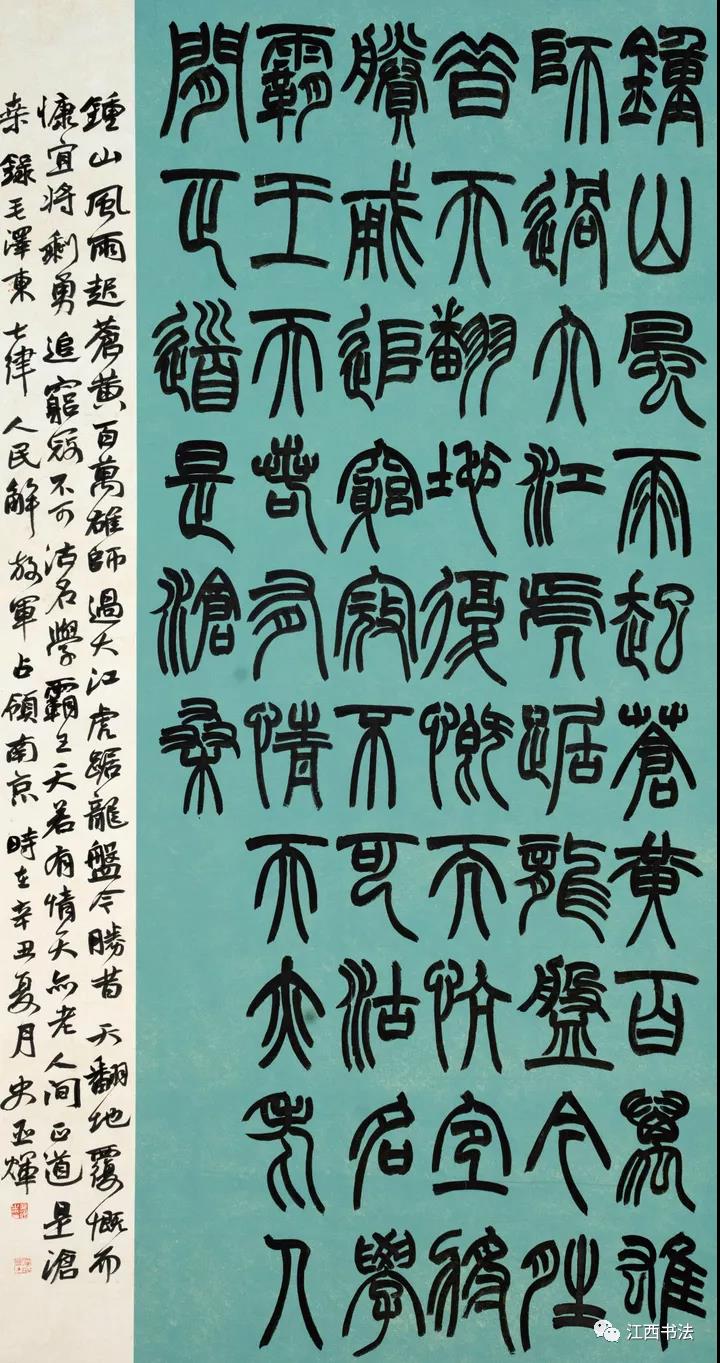 鍾山風雨起蒼黃百萬雄
師過大江虎踞龍盤今胜
昔天翻地復慨而忼宜將
賸勇追窮寇不可沽名學
霸王天若有情天亦老人
間正道是滄桑
鍾山風雨起蒼黃百萬雄師過大江虎踞龍盤今勝昔天翻地覆慨而
慷宜将剩勇追窮寇不可沽名學霸王天若有情天亦老人间正道是滄
桒錄毛澤東七律人民解放軍占領南京時在辛丑夏月史
江西书法